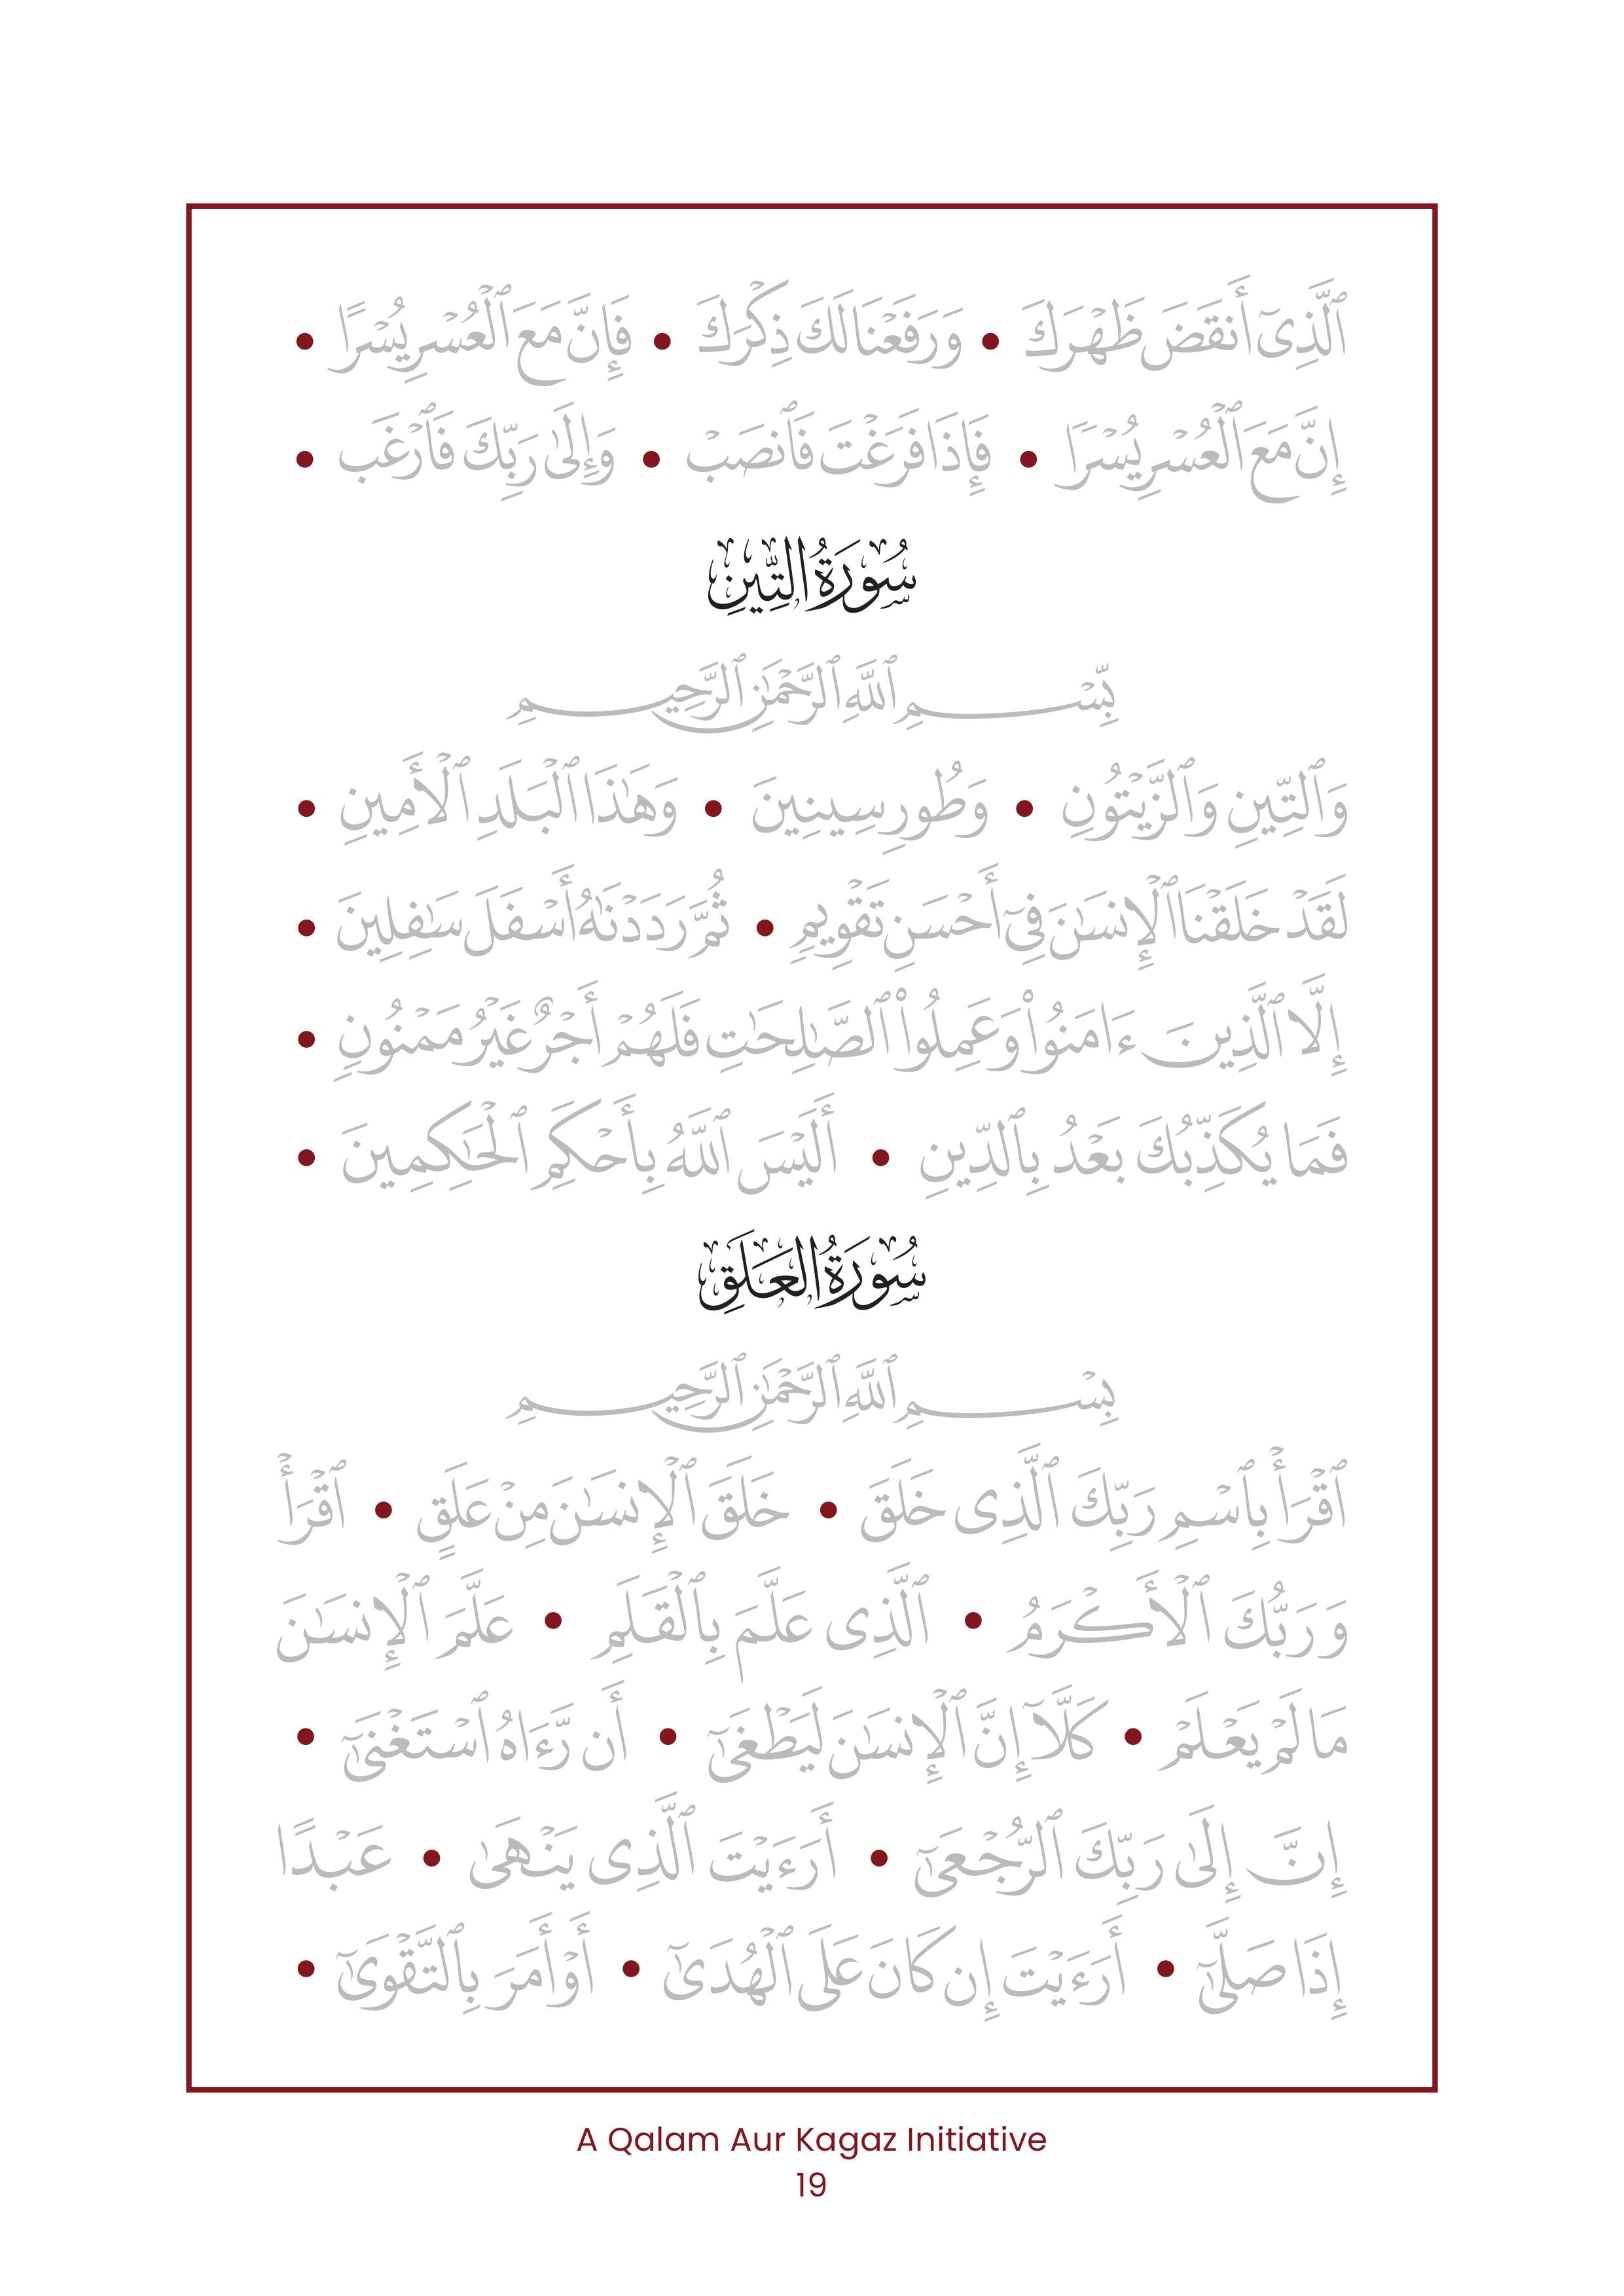 ٱلَّذِىٓ أَنقَضَ ظَهْرَكَ • وَرَفَعْنَا لَكَ ذِكْرَكَ • فَإِنَّ مَعَ ٱلْعُسْرِ يُسْرًا •
إِنَّ مَعَ ٱلْعُسْرِ يُسْرًا • فَإِذَا فَرَغْتَ فَٱنصَبْ • وَإِلَىٰ رَبِّكَ فَٱرْغَب •
سُورَةُ التِّينِ
بِّسْمِ ٱللَّهِ ٱلرَّحْمَٰنِ ٱلرَّحِيمِ
وَٱلتِّينِ وَٱلزَّيْتُونِ • وَطُورِ سِينِينَ • وَهَٰذَا ٱلْبَلَدِ ٱلْأَمِينِ •
لَقَدْ خَلَقْنَا ٱلْإِنسَٰنَ فِىٓ أَحْسَنِ تَقْوِيمٍ • ثُمَّ رَدَدْنَٰهُ أَسْفَلَ سَٰفِلِينَ •
إِلَّا ٱلَّذِينَ ءَامَنُوا۟ وَعَمِلُوا۟ ٱلصَّٰلِحَٰتِ فَلَهُمْ أَجْرٌ غَيْرُ مَمْنُونٍ •
فَمَا يُكَذِّبُكَ بَعْدُ بِٱلدِّينِ • أَلَيْسَ ٱللَّهُ بِأَحْكَمِ ٱلْحَٰكِمِينَ •
سُورَةُ الْعَلَقِ
بِسْمِ ٱللَّهِ ٱلرَّحْمَٰنِ ٱلرَّحِيمِ
ٱقْرَأْ بِٱسْمِ رَبِّكَ ٱلَّذِى خَلَقَ • خَلَقَ ٱلْإِنسَٰنَ مِنْ عَلَقٍ • ٱقْرَأْ
وَرَبُّكَ ٱلْأَكْرَمُ • ٱلَّذِى عَلَّمَ بِٱلْقَلَمِ • عَلَّمَ ٱلْإِنسَٰنَ
مَا لَمْ يَعْلَمْ • كَلَّآ إِنَّ ٱلْإِنسَٰنَ لَيَطْغَىٰٓ • أَن رَّءَاهُ ٱسْتَغْنَىٰٓ •
إِنَّ إِلَىٰ رَبِّكَ ٱلرُّجْعَىٰٓ • أَرَءَيْتَ ٱلَّذِى يَنْهَىٰ • عَبْدًا
إِذَا صَلَّىٰٓ • أَرَءَيْتَ إِن كَانَ عَلَى ٱلْهُدَىٰٓ • أَوْ أَمَرَ بِٱلتَّقْوَىٰٓ •
A Qalam Aur Kagaz Initiative
19